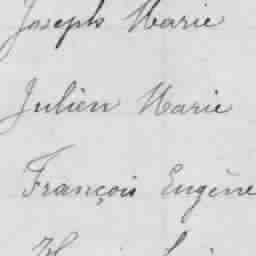 Joseph Marie
Julien Marie
François Eugène